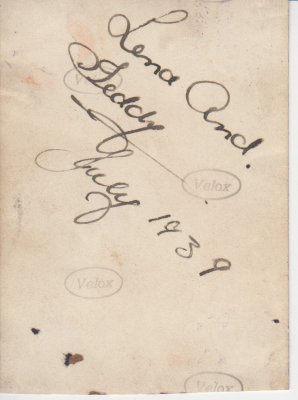 Lena And.
Teddy
July 1939
Velox
Velox
Velox
Velox